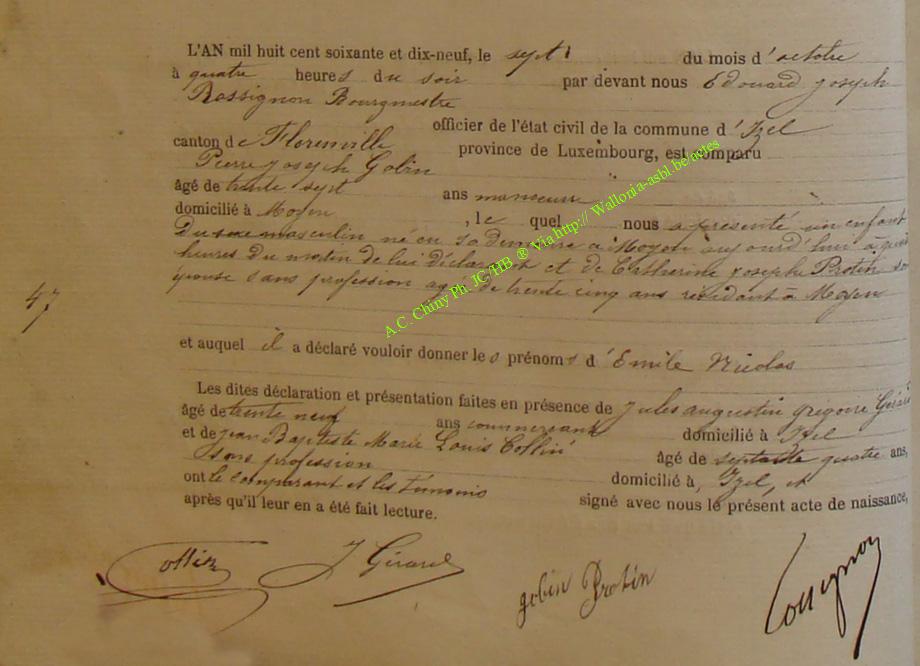 L'AN mil huit cent soixante et dix-neuf, le sept du mois d'octobre
à quatre heures du soir par devant nous Edouard Joseph
Rossignon Bourgmestre
officier de l'état civil de la commune d'Izel
canton de Florenville province de Luxembourg, est comparu
Pierre Joseph Gobin
âgé de trente sept ans manoeuvre
domicilié à Moyen, le quel nous a présenté un enfant
Du sexe masculin né en sa demeure à Moyen aujourd'hui à
heures du matin de lui déclarant et de Catherine Josephe Protin
épouse sans profession agée de trente cinq ans résidant à Moyen
47
et auquel il a déclaré vouloir donner les prénoms d'Emile Nicolas
Les dites déclaration et présentation faites en présence de Jules augustin grégoire Gérard
âgé de trente neuf ans commercant domicilié à Izel
et de Jean Baptiste Marie Louis Collin âgé de septante quatre ans,
sans profession domicilié à, Izel, et
ont le comparant et les témoins signé avec nous le présent acte de naissance,
après qu'il leur en a été fait lecture.
Collin J Girard gobin Protin Rossignon
A.C. Chiny Ph. JC/HB ® Via http:// Wallonia-asbl.be/actes